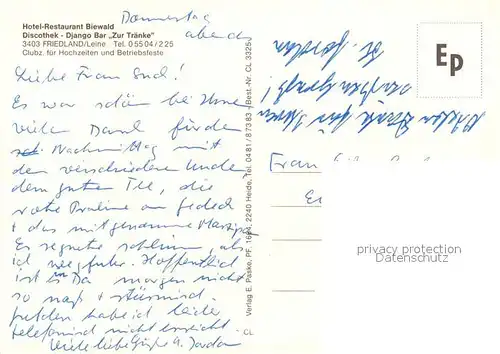 Hotel-Restaurant Biewald
Discothek - Django Bar „Zur Tränke"
3403 FRIEDLAND/Leine Tel. 0 55 04 / 2 25
Clubz. für Hochzeiten und Betriebsfeste
Donnerstag
abends
Liebe Frau
Es war schön bei Ihnen
vielen Dank für den
Nachmittag mit
den verschiedenen
dem guten Tee, die
rote Praline am Gedeck
+ das mitgenommene
Es regnete schlimm, als
ich wegfuhr. Hoffentlich
ist es in Da morgen nicht
so naß + stürmisch.
habe ich leider
telefonisch nicht erreicht.
Viele liebe Grüße
Verlag E. Paske, PF. 1664, 2240 Heide, Tel. 04 81 / 8 73 83 / Best.-Nr. CL 3325
CL
Ep
Vielen Dank für Ihren
Frau
privacy protection
Datenschutz